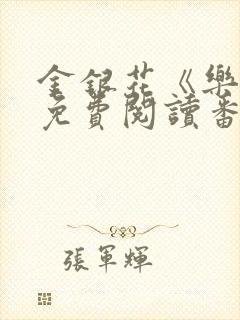 金銀花《樂
免費閱讀番
張軍輝